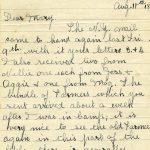 Aug 11th 19
Dear Mary
The N.Z. mail
came to hand again last Fri
9th. with it your letters 3 & 4
I also received two from
Nellie one each from Jess &
Aggie & one from Meg. The
bundle of Farmers which you
sent arrived about a week
after I was in camp, it is
very nice to see the old Farmer
again in this part of the